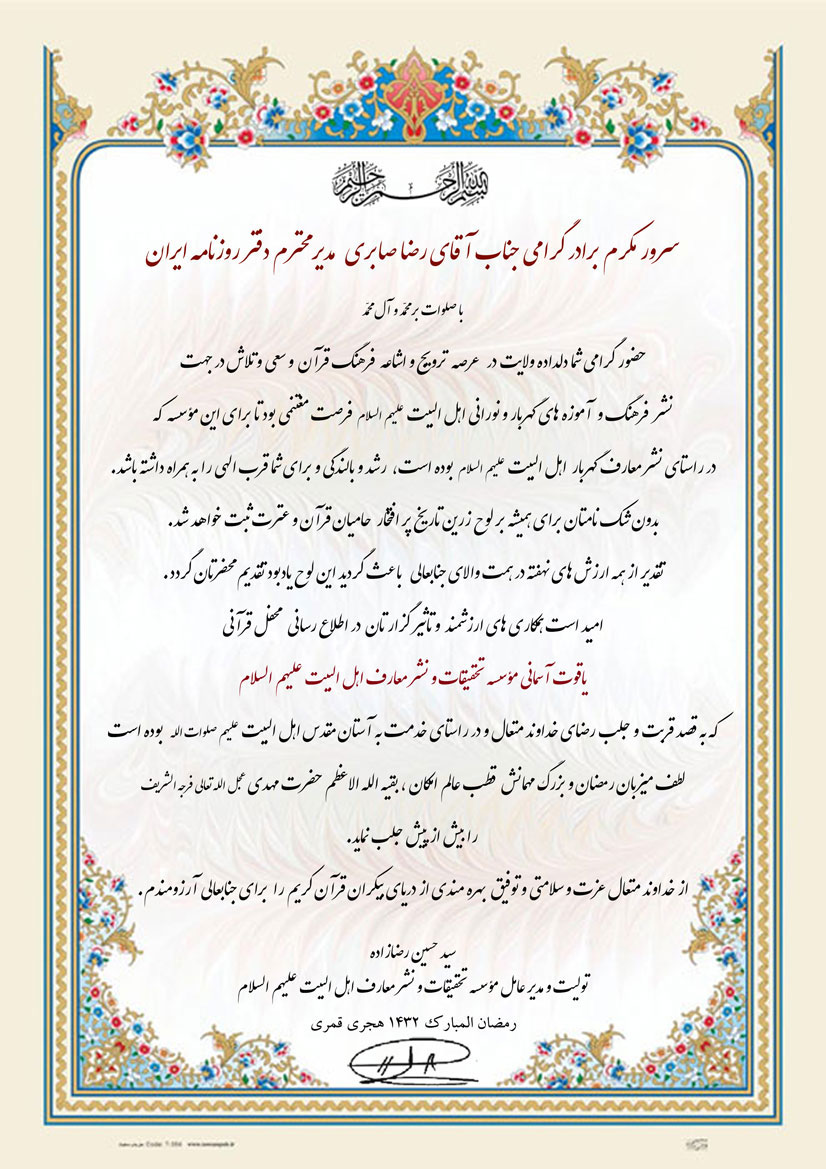 بسم الله الرحمن الرحیم
سرور مکرم برادر گرامی جناب آقای رضا صابری مدیر محترم دفتر روزنامه ایران
با صلوات بر محمّد و آل محمّد
حضور گرامی شما دلداده ولایت در عرصه ترویج و اشاعه فرهنگ قرآن و سعی و تلاش در جهت
نشر فرهنگ و آموزه های گهربار و نورانی اهل البیت علیهم السلام فرصت مغتنمی بود تا برای این مؤسسه که
در راستای نشر معارف گهربار اهل البیت علیهم السلام بوده است، رشد و بالندگی و برای شما قرب الهی را به همراه داشته باشد.
بدون شک نامتان برای همیشه بر لوح زرین تاریخ پر افتخار حامیان قرآن و عترت ثبت خواهد شد.
تقدیر از همه ارزش های نهفته در همت والای جنابعالی باعث گردید این لوح یادبود تقدیم محضرتان گردد.
امید است همکاری های ارزشمند و تاثیر گزارتان در اطلاع رسانی محفل قرآنی
یاقوت آسمانی مؤسسه تحقیقات و نشر معارف اهل البیت علیهم السلام
که به قصد قربت و جلب رضای خداوند متعال و در راستای خدمت به آستان مقدس اهل البیت علیهم صلوات الله بوده است
لطف میزبان رمضان و بزرگ مهمانش قطب عالم امکان ، بقیه الله الاعظم حضرت مهدی عجل الله تعالی فرجه الشریف
را بیش از پیش جلب نماید.
از خداوند متعال عزت و سلامتی و توفیق بهره مندی از دریای بیکران قرآن کریم را برای جنابعالی آرزومندم.
سید حسین رضازاده
تولیت و مدیر عامل مؤسسه تحقیقات و نشر معارف اهل البیت علیهم السلام
رمضان المبارک ۱۴۳۲ هجری قمری